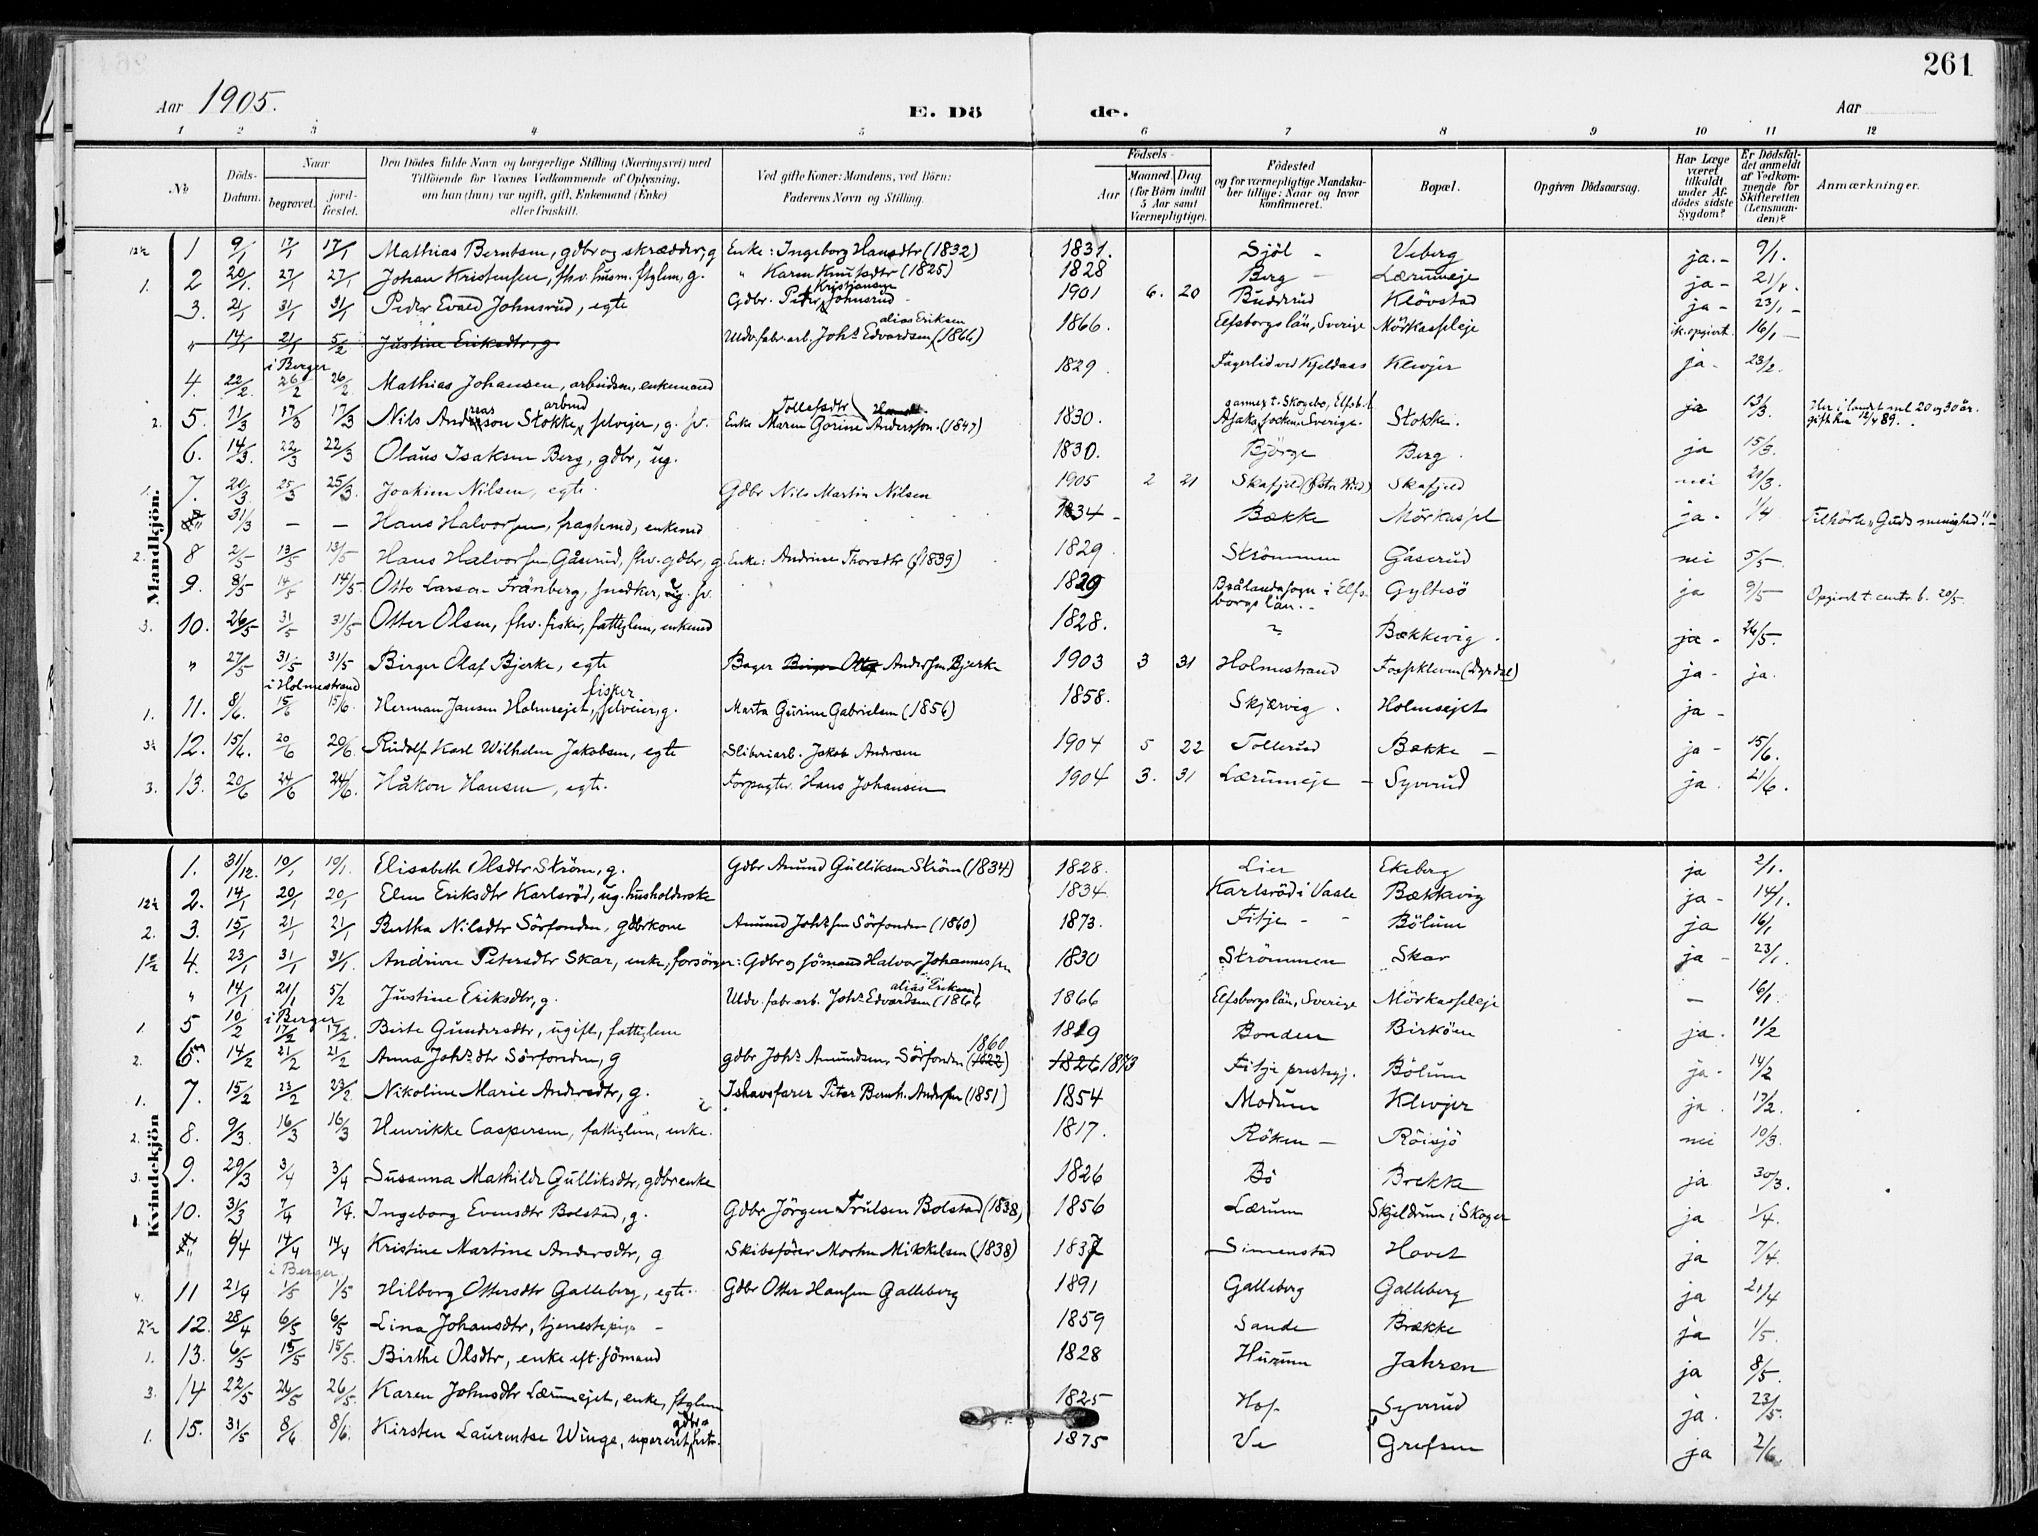 261
Aar 1905.
E. Dö de.
Aar
1 2 3 4 5 6 7 8 9 10 11 12
No
Döds-Datum.
Naar
begravet.
jord-fæstet.
Den Dödes fulde Navn og borgerlige Stilling (Næringsvei) med
Tilföiende for Voxnes Vedkommende af Oplysning,
om han (hun) var ugift, gift, Enkemand (Enke)
eller fraskilt.
Ved gifte Koner: Mandens, ved Börn:
Faderens Navn og Stilling.
Födsels-
Aar
Maaned. Dag
(for Börn indtil
5 Aar samt
Værnepligtige).
Födested
og for værnepligtige Mandska-
ber tillige: Naar og hvor
konfirmeret.
Bopæl.
Opgiven Dödsaarsag.
Har Læge
været
tilkaldt
under Af-
dödes sidste
Sygdom?
Er Dödsfal-
det anmeldt
af Vedkom-
mende for
Skifteretten
(Lensman-
den)?
Anmærkninger.
Mandkjön.
1 9/1 17/1 17/1 Mathias Berntsen, gdbr og skrædder, g Enke: Ingeborg Hansdtr (1832) 1831. Sjöl - Veberg ja.- 9/1.
1. 2 20/1. 27/1 27/1 Johan Kristensen, fhv. husm. ftglem, g. " Karen Knutsdtr (1825) 1828 Berg - Lærumeje ja - 21/1.
3. 21/1 31/1 31/1 Peder Evald Johnsrud, egte Gdbr. Peter Kristiansen Johnsrud - 1901 6. 20 Budderud Klövstad ja - 23/1 -
" 14/1 21/1 5/2 Justine Eriksdtr, g Uldv.fabr.arb. Johs Edvardsen alias Eriksen (1866) 1866. Elfsborgs län, Sverige Mörkasseleje ik. opgivet. 16/1 -
i Berger
4. 22/2. 26/2 26/2 Mathias Johansen, arbeider, enkemand 1829. Fagerlid ved Kjeldaas Klevjer ja. 23/2.
2. 5. 11/3 17/3 17/3 Nils Andreasson Stokke, arbmd selveier, g. sv. Enke Maren Gorine Tollefsdtr Andersson. (1847) 1830. Sverige. Stokke. ja 13/3. Her i landet mel 20 og 30 år. gift 12/4 89.
6. 14/3. 22/3 22/3 Olaus Isaksen Berg, gdbr, ug. 1830. Björge Berg. ja 15/3.
1. 7. 20/3. 25/3 25/3. Joakim Nilsen, egte. Gdbr Nils Martin Nilsen 1905 2 21 Skafjeld Skafjeld nei 20/3.
" 31/3 — — Hans Halvorsen, fragtemd, enkemd 1834 - Bække Mörkassel ja. 1/4 Tilhörte "Guds menighed"!
2. 8 2/5 13/5 13/5 Hans Halvorsen Gåserud, fhv. gdbr, g. Enke: Andrine Thorsdtr (1839) 1829. Strömmen Gåserud nei 5/5.
9. 8/5 14/5 14/5. Otto Larson Fränberg, snedker, ug. sv. 1829 Brålanda sogn i Elfsborgs län. Gyltesö ja 9/5. Opgivet t. centr. b. 20/5.
3. 10. 26/5 31/5 31/5 Otter Olsen, fhv. fisker, fattiglem, enkemd 1828. ? Bækkevig. ja - 26/5.
" 27/5 31/5 31/5 Birger Olaf Bjerke, egte Bager Birger Otto Andersen Bjerke 1903 3 31 Holmestrand Fosskleven (Dyrdal) ja - ja.
i Holmestrand
1. 11. 8/6. 15/6 15/6. Herman Jansen Holmsejet, fisker selveier, g. Marta Gurine Gabrielsen (1856) 1858. Skjærvig. Holmsejet ja -
12. 15/6. 20/6 20/6. Rudolf Karl Wilhelm Jakobsen, egte Sliberiarb. Jakob Andersen 1904 5 22 Tollerud Bakke - ja - 15/6.
3. 13. 20/6 24/6 24/6. Håkon Hansen, egte. Forpagter Hans Johansen 1904 3. 31 Lærumeje - Syverud ja. 21/6.
Kvindekjön
1. 31/12. 10/1 10/1. Elisabeth Olsdtr Ström, g. Gdbr Amund Gulliksen Ström (1834) 1828. Lier Ekeberg ja 2/1.
2. 14/1 20/1 20/1 Elen Eriksdtr Karlsröd, ug. husholderske 1834. Karlsröd i Vaale Bækkevig ja - 14/1.
2. 3. 15/1 21/1 21/1 Berthe Nilsdtr Sörfonden, gdbrkone Amund Johs.sen Sörfonden (1860) 1873. Fitje - - Bölum ja 16/1
4. 23/1 31/1 31/1. Andrine Petersdtr Skar, enke, forsörger: Gdbr og sömand Halvor Johannessen 1830 Strömmen Skar ja - 23/1.
" 14/1 21/1 5/2 Justine Eriksdtr, g. Uldv. fabr arb. Johs Edvardsen alias Eriksen) (1866 1866 Elfsborgs län, Sverige Mörkasseleje — 16/1
i Berger
1. 5 10/2 17/2 17/2. Berte Gundersdtr, ugift, fattiglem 1819 Bonden Birköen ja. 11/2
2. 6. 14/2 21/2 21/2 Anna Johs.dtr Sörfonden, g gdbr Johs Amundsen Sörfonden (1822) 1860 1826/1873 Fitje prestegj. Bölum ja. 14/2
1. 7. 15/2 23/2 23/2 Nikoline Marie Andersdtr, g. Ishavsfarer Peter Bernh. Andersen (1851) 1854 Modum Klevjer ja. 17/2.
2. 8. 9/3. 16/3 16/3 Henrikke Caspersen, fattiglem, enke. 1817. Röken - Röisjö nei 10/3.
3. 9. 29/3 3/4 3/4 Susanna Mathilde Gulliksdtr, gdbrenke 1826 Bö Brekke ja 30/3.
1. 10. 31/3 7/4 7/4. Ingeborg Evensdtr Bolstad, g. Gdbr Jörgen Trulsen Bolstad (1838) 1856 Lærum Skjeldrum i Skoger ja 1/4.
" 6/4 14/4 14/4 Kristine Martine Andersdtr, g Skibsförer Morten Mikkelsen (1838) 1837 Simenstad Hovet ja 7/4.
i Berger
4. 11 21/4 1/5 1/5 Hilborg Ottersdtr Galleberg, egte. Gdbr Otter Hansen Galleberg 1891 Galleberg Galleberg ja 21/4
2½ 12. 28/4 6/5 6/5 Lina Johansdtr, tjenestepige - 1859 Sande Brække ja 1/5.
1. 13. 6/5 15/5 15/5. Birthe Olsdtr, enke eft. sömand 1828 Hurum Jahren ja 8/5.
3. 14 22/5 26/5 26/5. Karen Johnsdtr Lærumejet, enke, ftglem 1825 Hof Syverud ja. 23/5.
1. 15. 31/5 8/6 8/6. Kirsten Laurentse Winge, separeret gdbr. 1875 Ve Grefsen ja 2/6